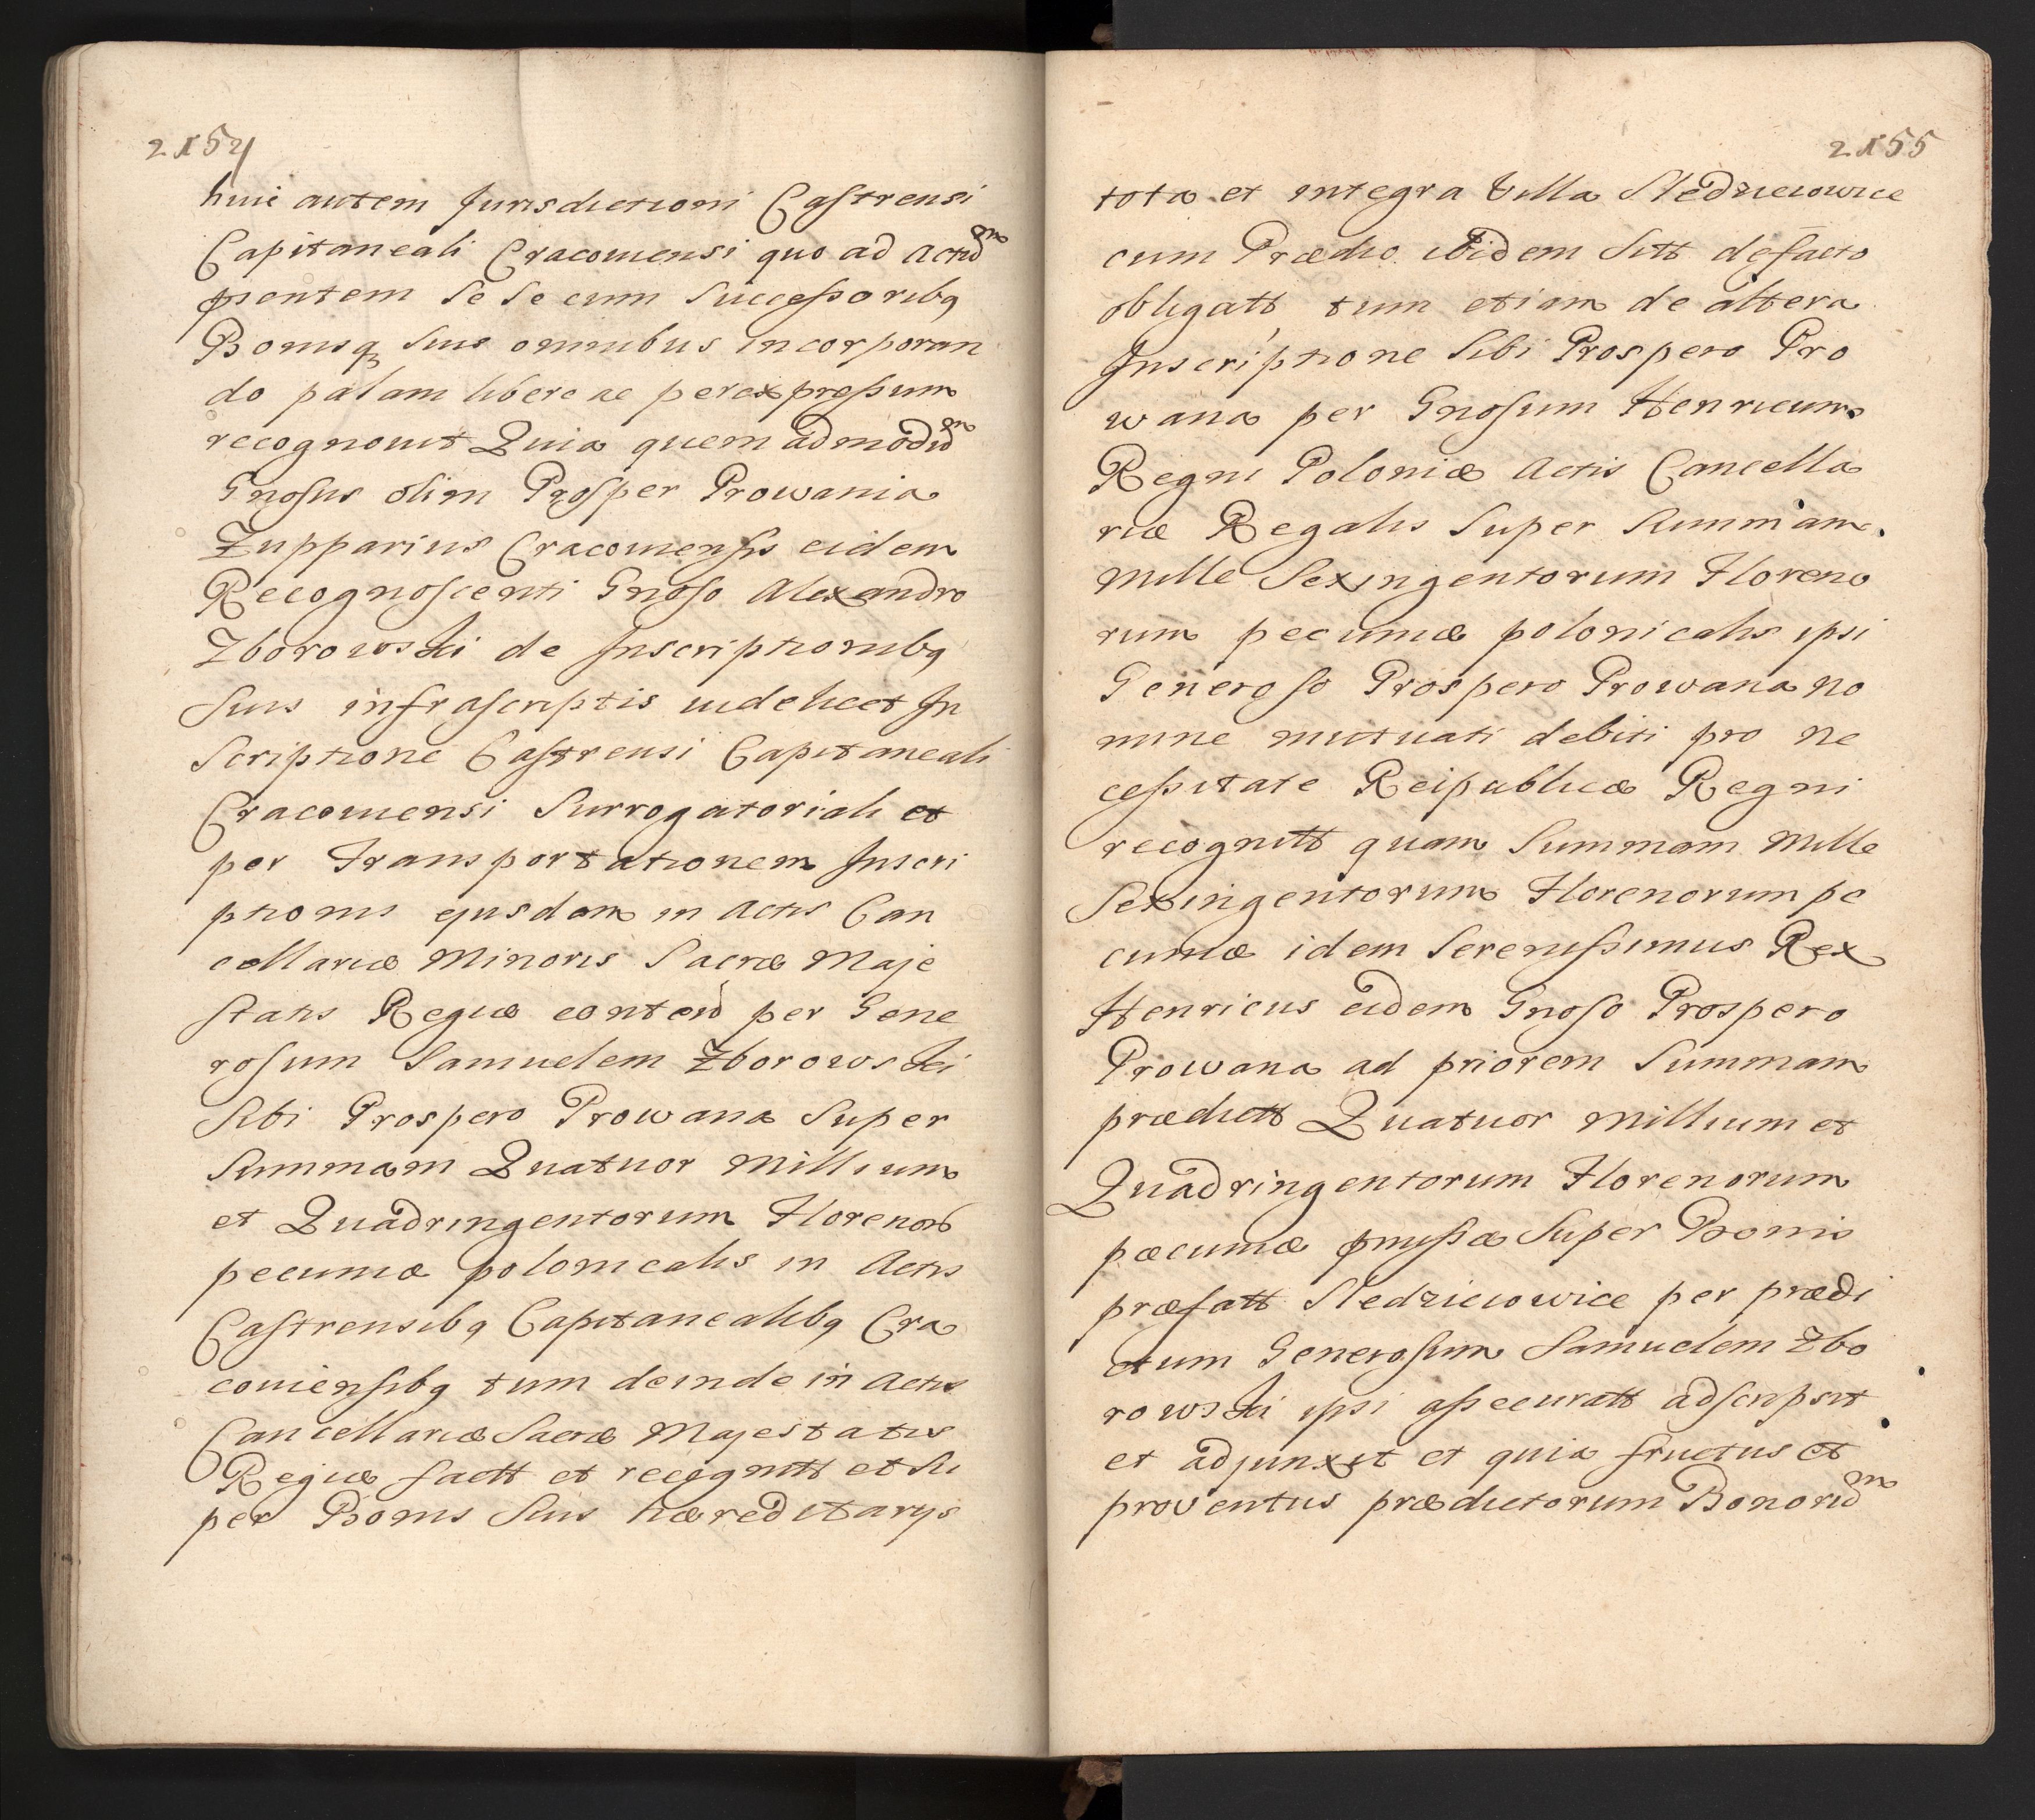 2154
huic autem Jurisdictioni Castrensi
Capitaneali Cracoviensi quo ad actum
pntentem Se Se cum Successoribq
Bonisq Suis omnibus incorporan
do palam libere ac per expressum
recognovit Quia quem admodum
Gnosus olim Prosper Prowania
Zupparius Cracoviensis eidem
Recognoscenti Gnoso Alexandro
Zborowski de Inscriptionibq
Suis infrascriptis videlicet In
Scriptione Castrensi Capitaneali
Cracoviensi Surrogatoriali et
per Transportationem Inscri
ptionis ejusdem in Actis Can
cellariæ Minoris Sacræ Maje
statis Regiæ content per Gene
rosum Samuelem Zborowski
Sibi Prospero Prowana Super
Summam Quatuor Millium
et Quadringentorum Florenor
pecuniæ polonicalis in Actis
Castrensibq Capitanealibq Cra
coviensibq tum deinde in Actis
Cancellariæ Sacræ Majestatis
Regiæ factt et recognitt et Su
per Bonis Suis hæreditarys
2155
tota et integra Villa Sledzieiowice
cum Prædio ibidem Sitt de facto
obligatt tum etiam de altera
Inscriptione Sibi Prospero Pro
wana per Gnosum Henricum
Regni Poloniæ Actis Cancella
riæ Regalis Super Summam
Mille Sexingentorum Floreno
rum pecuniæ polonicalis ipsi
Generoso Prospero Prowana no
mine mutuati debiti pro ne
cessitate Reipublicæ Regni
recognitt quam Summam Mille
Sexingentorum Florenorum pe
cuniæ idem Serenissimus Rex
Henricus eidem Gnoso Prospero
Prowana ad priorem Summam
prædictt Quatuor Millium et
Quadringentorum Florenorum
pæcuniæ pmissæ Super Bonis
præfatt Sledzieiowice per prædi
ctum Generosum Samuelem Zbo
rowski ipsi assecuratt adscripsit
et adjunxit et quia fructus et
proventus prædictorum Bonorum